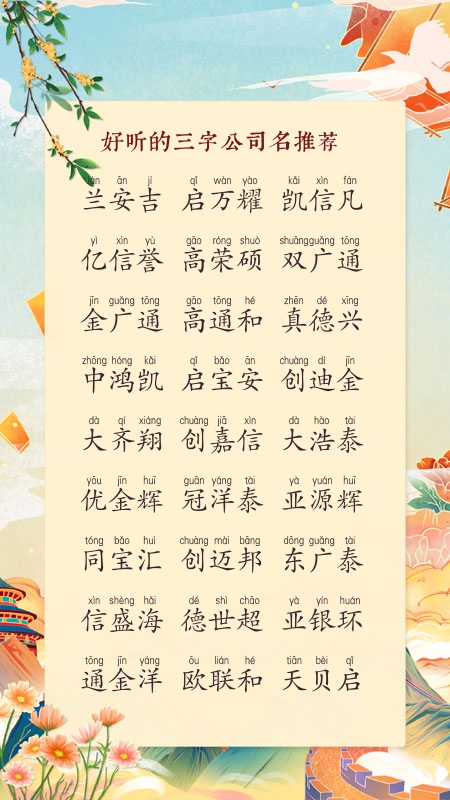 好听的三字公司名推荐
lán ān jí qǐ wàn yào kǎi xìn fán
兰安吉 启万耀 凯信凡
yì xìn yù gāo róng shuò shuāng guǎng tōng
亿信誉 高荣硕 双广通
jīn guǎng tōng gāo tōng hé zhēn dé xīng
金广通 高通和 真德兴
zhōng hóng kǎi qǐ bǎo ān chuàng dí jīn
中鸿凯 启宝安 创迪金
dà qí xiáng chuàng jiā xìn dà hào tài
大齐翔 创嘉信 大浩泰
yōu jīn huī guān yáng tài yà yuán huī
优金辉 冠洋泰 亚源辉
tóng bǎo huì chuàng mài bāng dōng guǎng tài
同宝汇 创迈邦 东广泰
xìn shèng hǎi dé shì chāo yà yín huán
信盛海 德世超 亚银环
tōng jīn yáng ōu lián hé tiān bèi qǐ
通金洋 欧联和 天贝启